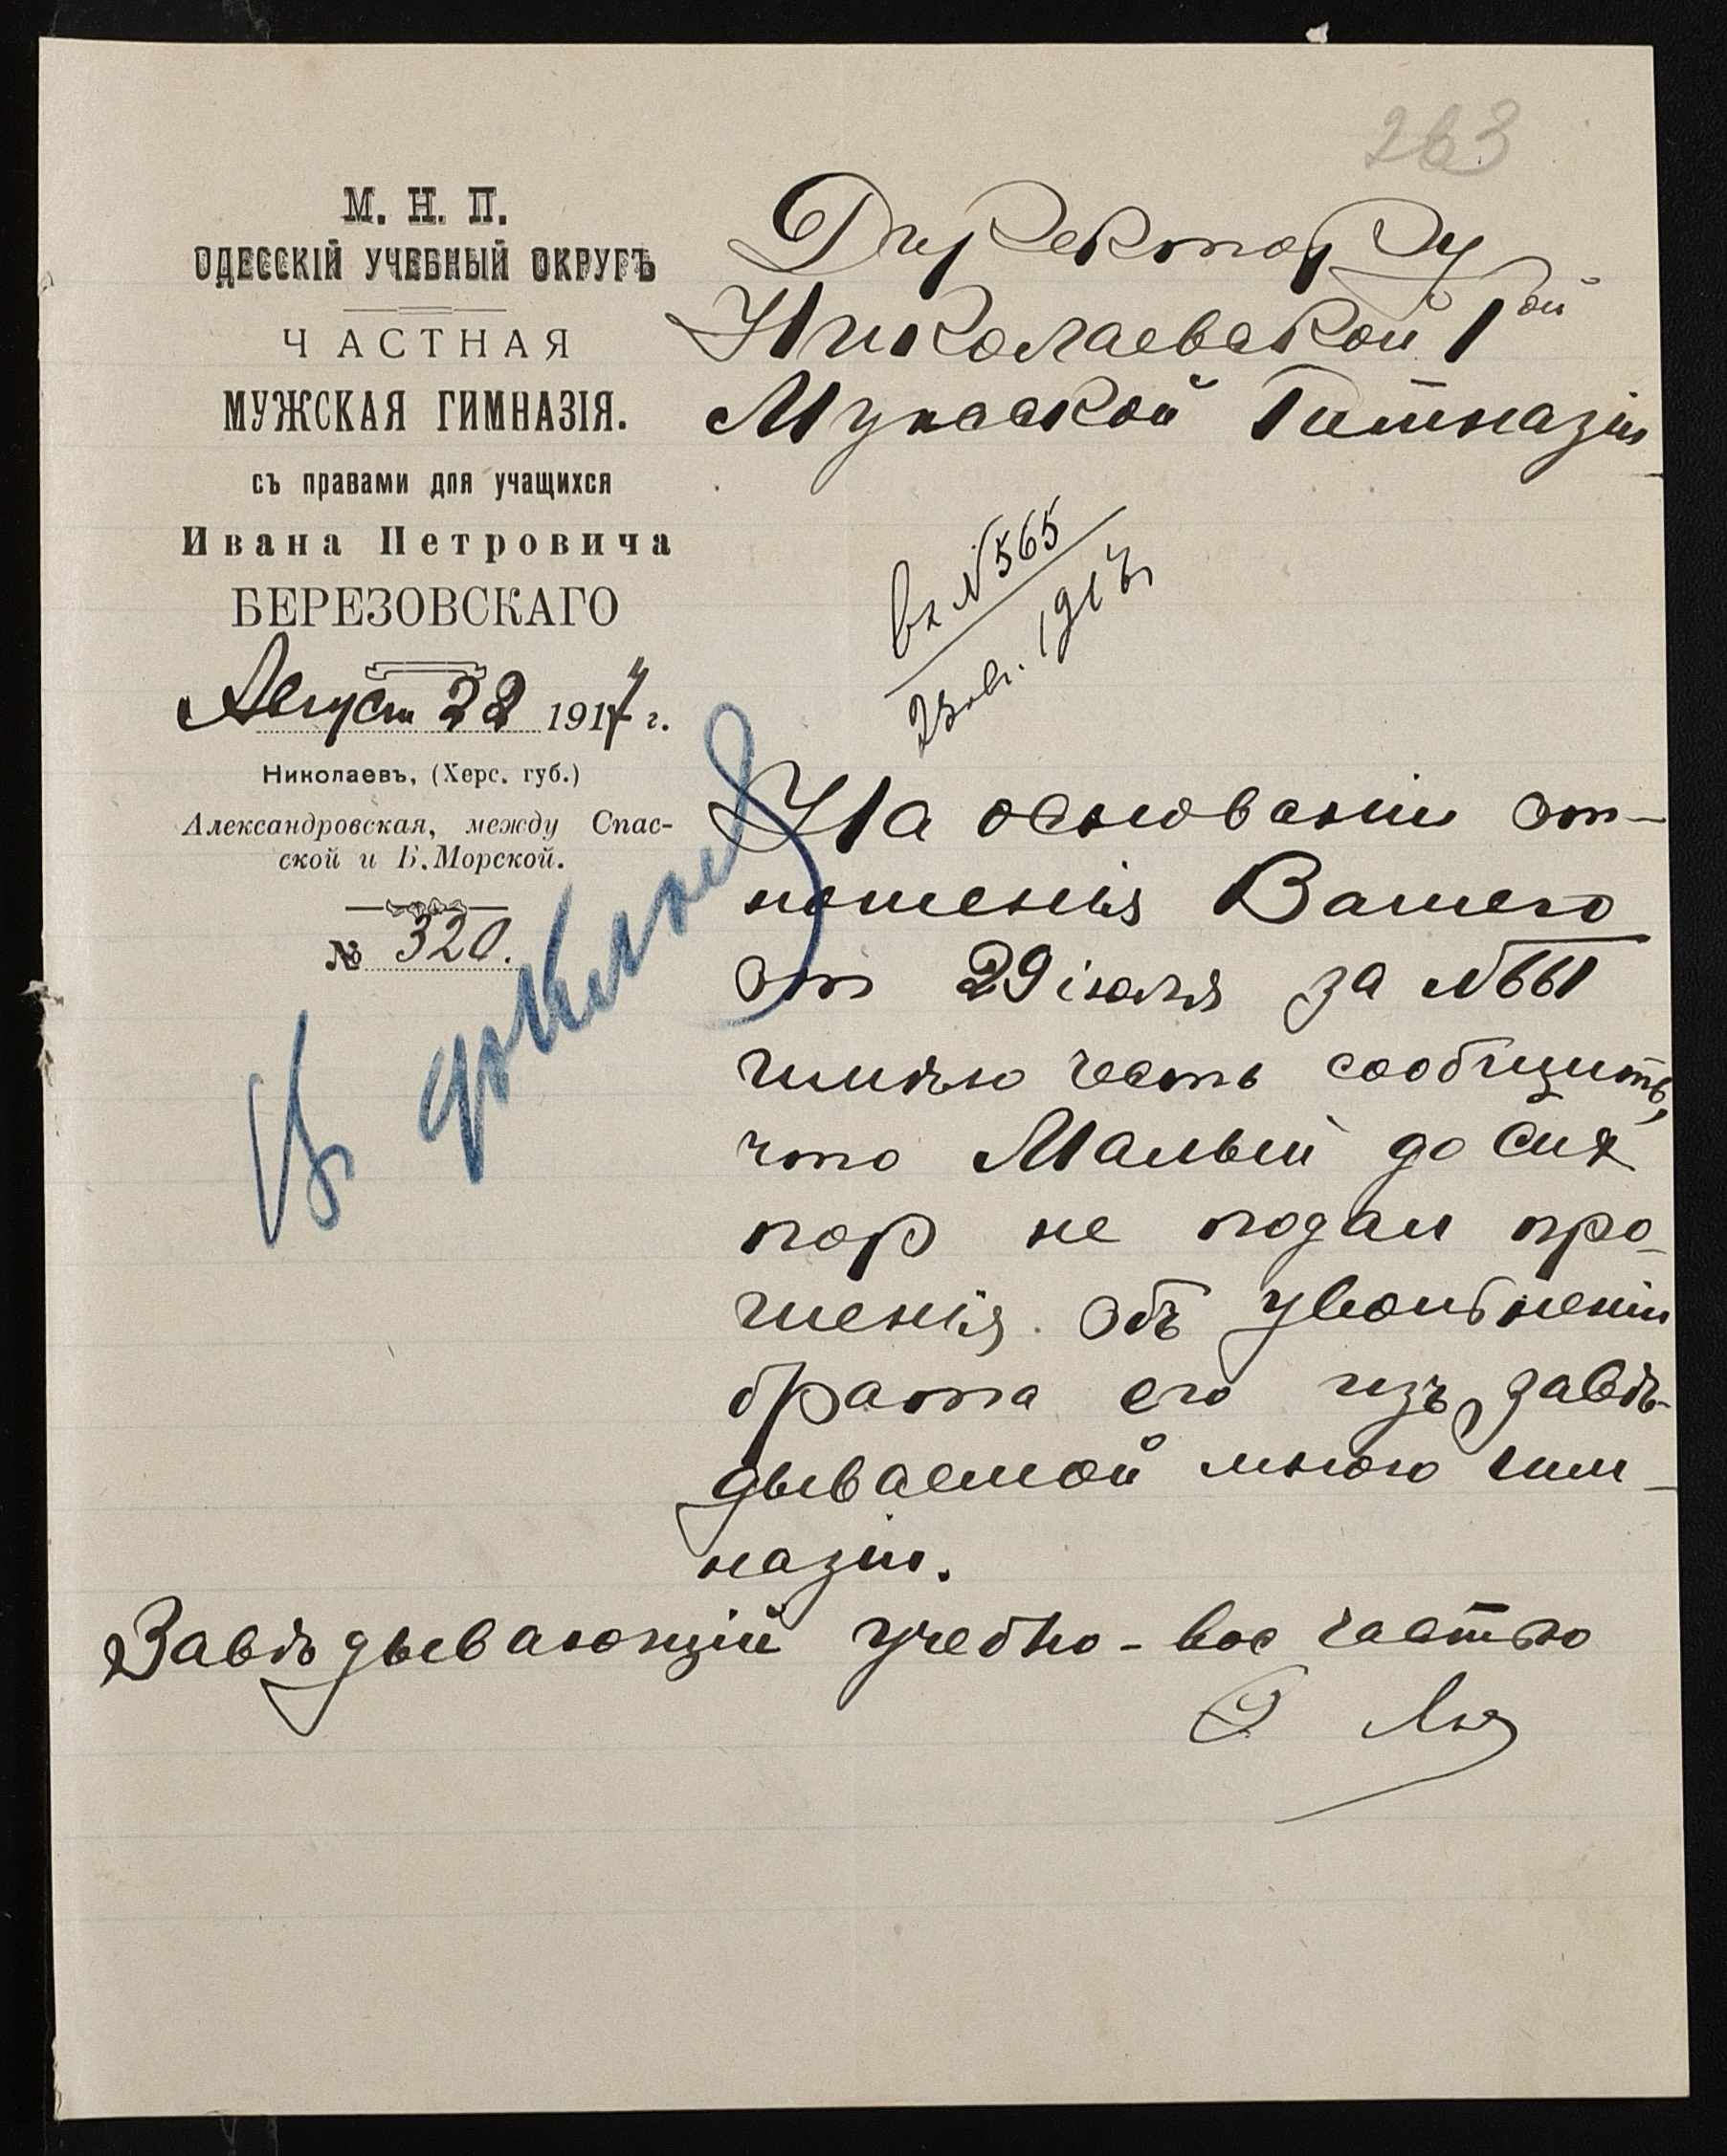 263
М. Н. П.
ОДЕССКІЙ УЧЕБНЫЙ ОКРУГЪ
ЧАСТНАЯ
МУЖСКАЯ ГИМНАЗІЯ.
съ правами для учащихся
Ивана Петровича
БЕРЕЗОВСКАГО
Август 22 1917 г.
Николаевъ, (Херс. губ.)
Александровская, между Спас-
ской и Б. Морской.
№ 320.
Директору
Николаевской 1ой
Мужской Гимназіи
Вх № 565
1917
На основаніи от-
ношенія Вашего
от 29 іюля за № 661
имѣю честь сообщить,
что Малый до сих
пор не подал про-
шенія объ увольненіи
брата его изъ завѣ-
дываемой мною гим-
назіи.
Завѣдывающій учебно-вос частью